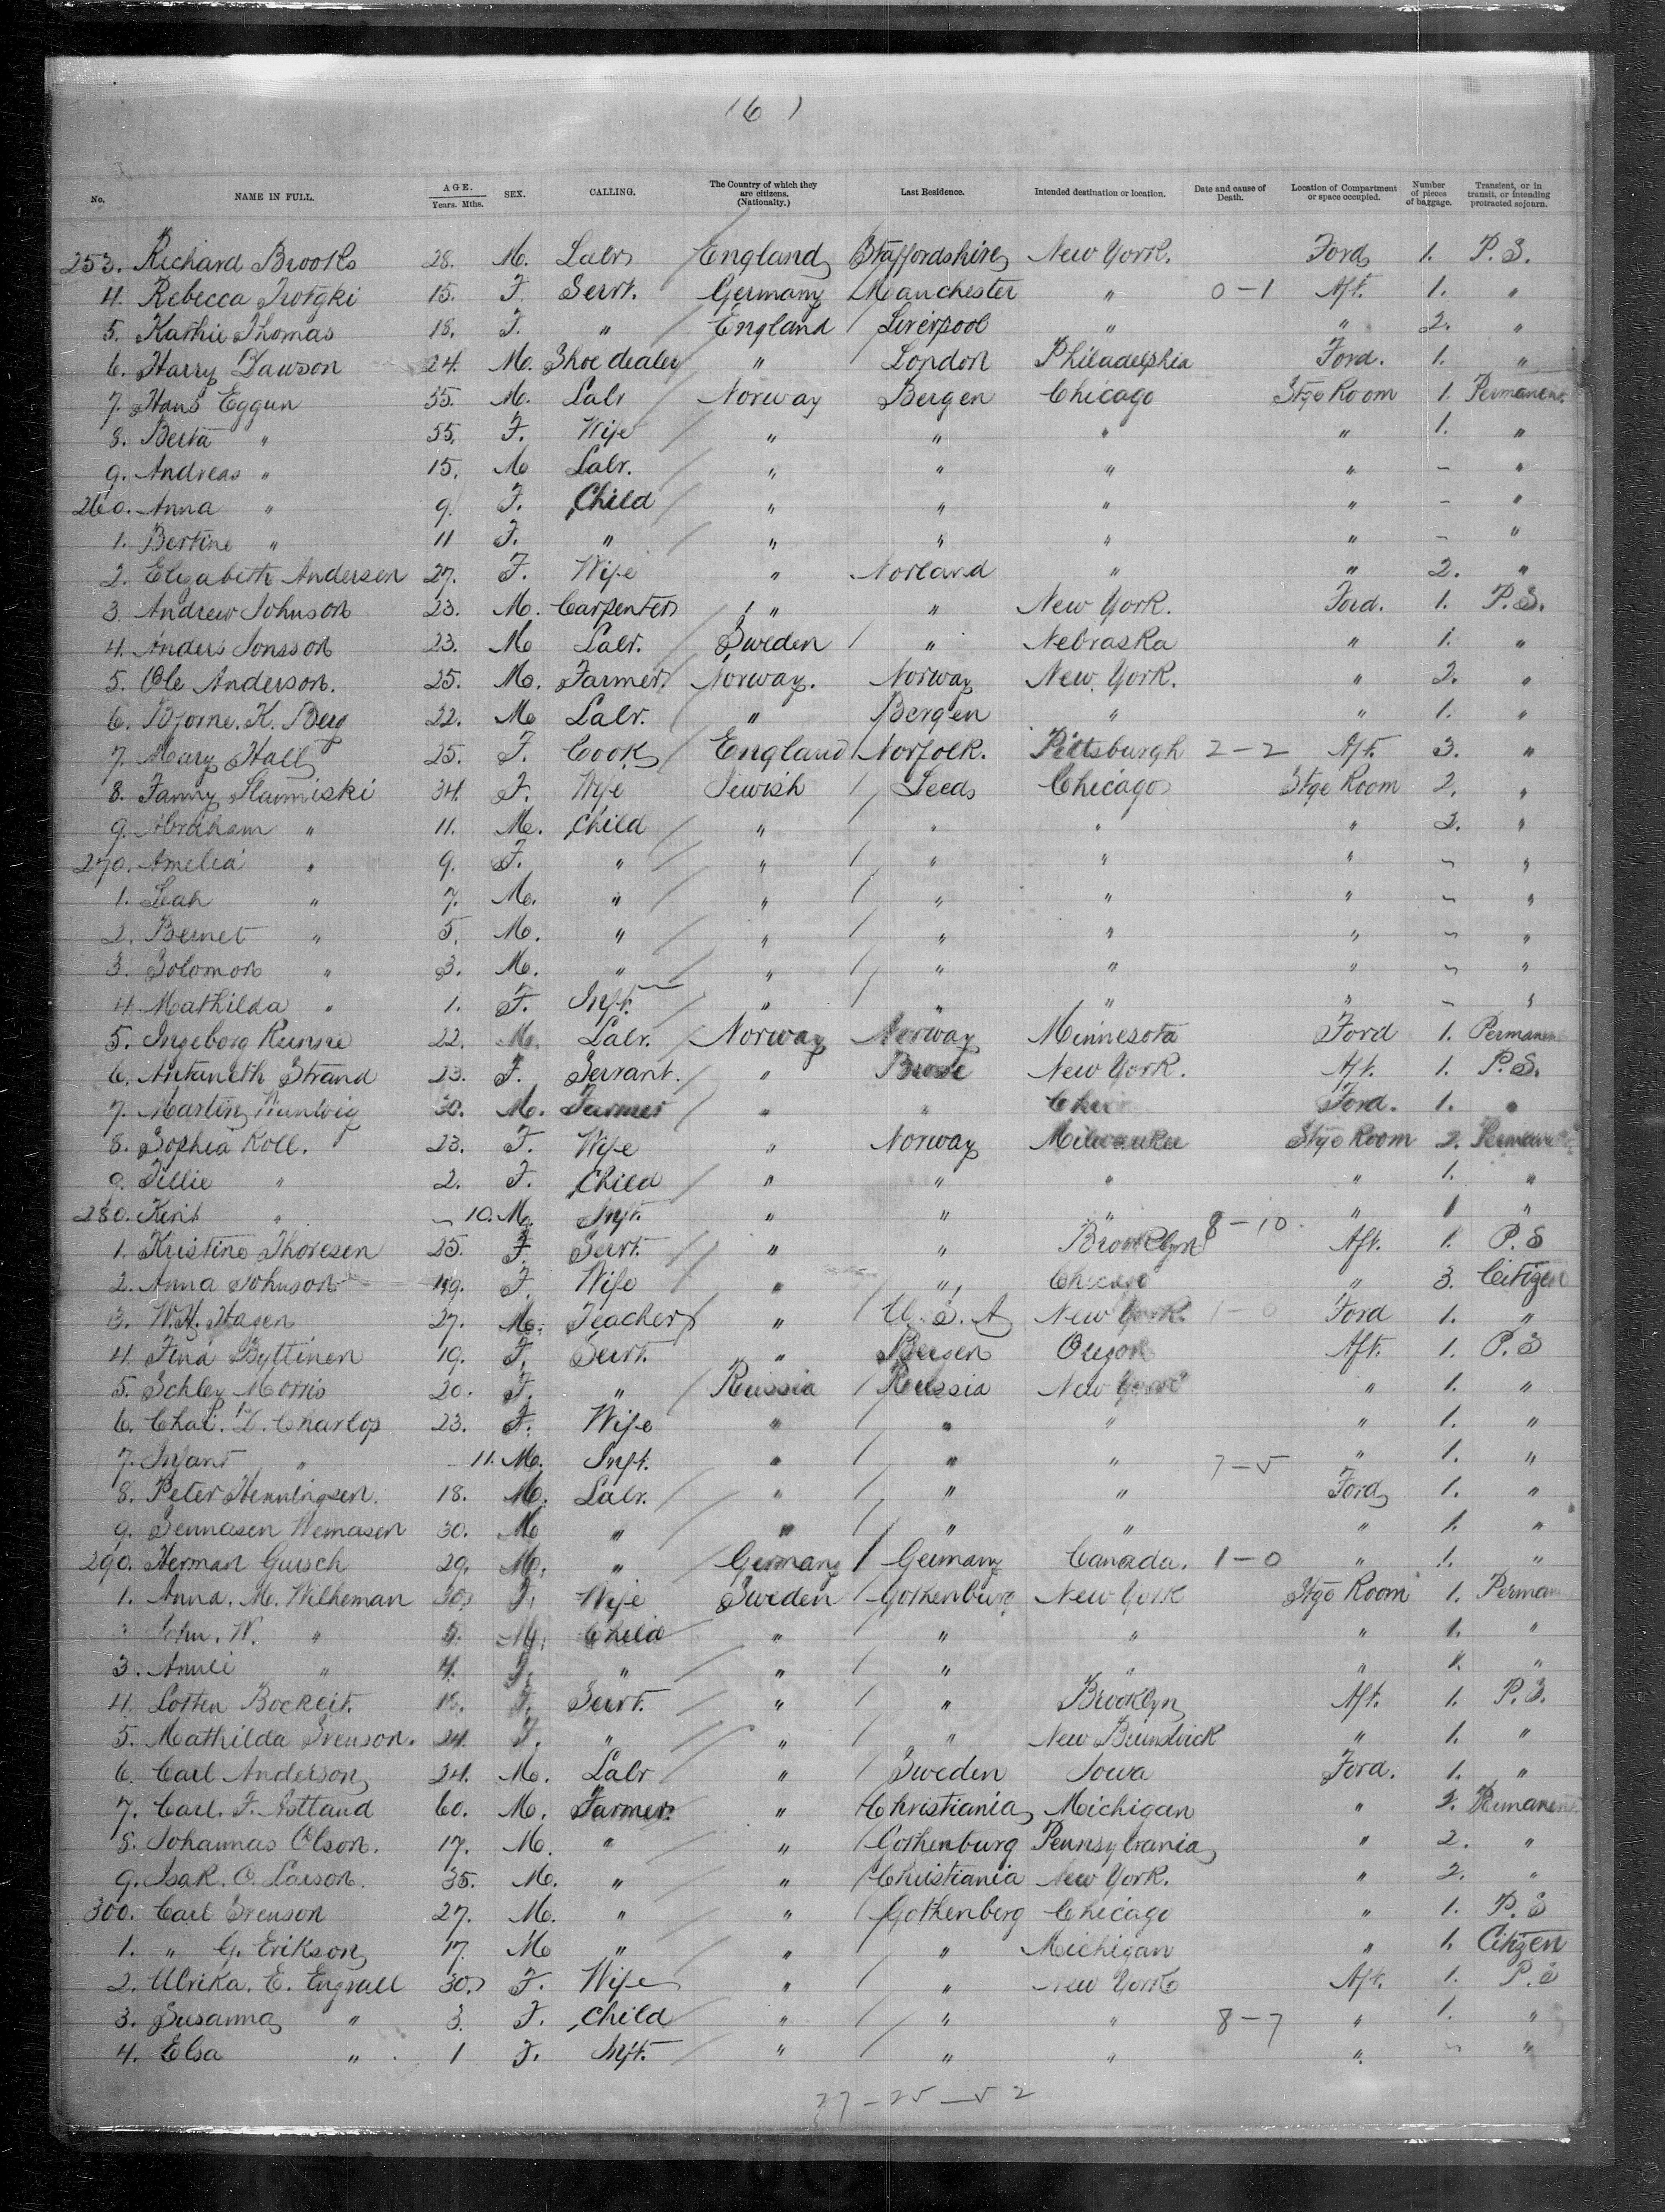 (6)
No. NAME IN FULL. AGE. Years. Mths. SEX. CALLING. The Country of which they are citizens. (Nationality.) Last Residence. Intended destination or location. Date and cause of Death. Location of Compartment or space occupied. Number of pieces of baggage. Transient, or in transit, or intending protracted sojourn.
253. Richard Brooks 28. M. Labr England Staffordshire New York. Ford 1. P.S.
4. Rebecca 15. F. Servt. Germany Manchester " 0-1 Aft. 1. "
5. Kathie Thomas 18. F. " England Liverpool " " 2. "
6. Harry Dawson 24. M. Shoe dealer " London Philadelphia Ford. 1. "
7. Hans Eggun 55. M. Labr Norway Bergen Chicago Stge Room 1. Permanent.
8. Berta " 55. F. Wife " " " " 1. "
9. Andreas " 15. M Labr. " " " " - "
260. Anna " 9. F. Child " " " " - "
1. Bertine " 11 F. " " " " " - "
2. Elizabeth Andersen 27. F. Wife " Norland " " 2. "
3. Andrew Johnson 23. M. Carpenter " " New York. Ford. 1. P.S.
4. Anders Jonsson 23. M Labr. Sweden " Nebraska " 1. "
5. Ole Anderson. 25. M. Farmer Norway. Norway New York. " 2. "
6. Bjorne. K. Berg 22. M Labr. " Bergen " " 1. "
7. Mary Hall 25. F. Cook England Norfolk. Pittsburgh 2-2 Aft. 3. "
8. Fanny 34. F. Wife Jewish Leeds Chicago Stge Room 2. "
9. Abraham " 11. M. Child " " " " 2. "
270. Amelia " 9. F. " " " " " - "
1. Leah " 7. M. " " " " " - "
2. Bernet " 5. M. " " " " " - "
3. Solomon " 3. M. " " " " " - "
4. Mathilda " 1. F. Inft. " " " " - "
5. Ingeborg 22. M. Labr. Norway Norway Minnesota Ford 1. Permanent
6. Strand 23. F. Servant. " New York. Aft. 1. P.S.
7. Martin 30. M. Farmer " " Ford. 1. "
8. Sophia Koll. 23. F. Wife " Norway Milwaukee Stge Room 2. Permanent
9. Tillie " 2. F. Child " " " " 1. "
280. " - 10. M. Inft. " " " 8-10 " 1 "
1. Kristine Thoresen 25. F. Servt. " " Brooklyn Aft. 1. P.S
2. Anna Johnson 49. F. Wife " " Chicago " 3. Citizen
3. W.H. Hagen 27. M. Teacher " U.S.A New York. 1-0 Ford 1. "
4. Tina Byttinen 19. F. Servt. " Bergen Oregon Aft. 1. P.S
5. Schley Morris 20. F. " Russia Russia New York " 1. "
6. 23. F. Wife " " " " 1. "
7. Infant " - 11. M. Inft. " " " 7-5 " 1. "
8. Peter Henningsen. 18. M. Labr. " " " Ford 1. "
9. 30. M " " " " " 1. "
290. Herman Gursch 29. M. " Germany Germany Canada. 1-0 " 1. "
1. Anna. M. Wilheman 30. F. Wife Sweden Gothenburg New York Stge Room 1. Perman
John. W. " M. Child " " " " 1. "
3. " 4. F. " " " " " 1. "
4. Lotten F. Servt. " " Brooklyn Aft. 1. P.S.
5. Mathilda Svenson. 24. F. " " " New Brunswick " 1. "
6. Carl Anderson 24. M. Labr " Sweden Iowa Ford. 1. "
7. Carl. F. 60. M. Farmer. " Christiania Michigan " 2. Permanent
8. Johannas Olson. 17. M. " " Gothenburg Pennsylvania " 2. "
9. Isak. O. Larson. 35. M. " " Christiania New York. " 2. "
300. Carl Svenson 27. M. " " Gothenberg Chicago " 1. P.S
1. " G. Erikson 17. M " " " Michigan " 1. Citizen
2. Ulrika. E. Engvall 30. F. Wife " " New York Aft. 1. P.S
3. Susanna " 3. F. Child " " " 8-7 " 1. "
4. Elsa " 1 F. Inft. " " " " - "
27-25-52